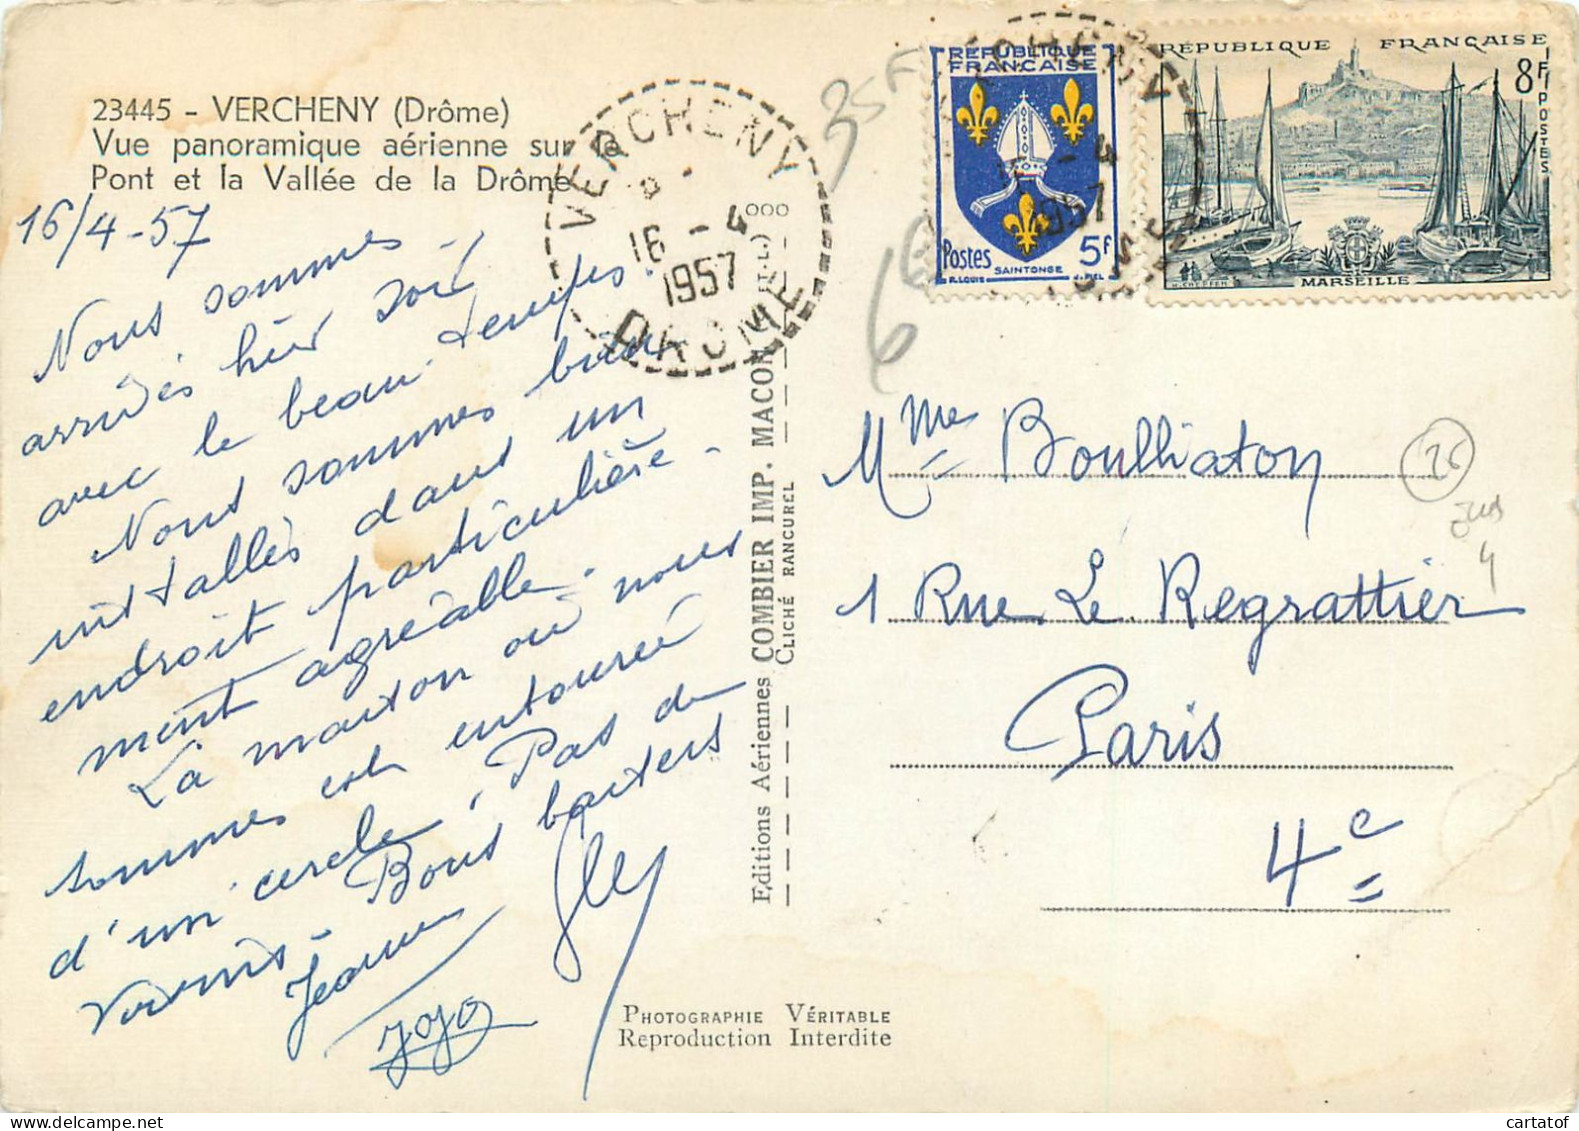 23445 - VERCHENY (Drôme)
Vue panoramique aérienne sur le
Pont et la Vallée de la Drôme
16/4-57
Nous sommes
arrivés hier soir
avec le beau temps.
Nous sommes bien
installés dans un
endroit particulière-
ment agréable.
La maison où nous
sommes est entourée
d'un cercle. Pas de
voisins - Bons baisers
Jeanne
Jojo
VERCHENY
16 - 4
1957
DROME
Editions Aériennes COMBIER IMP. MACON
CLICHÉ RANCUREL
PHOTOGRAPHIE VÉRITABLE
Reproduction Interdite
35F
66
RÉPUBLIQUE
FRANÇAISE
Postes 5f
SAINTONGE
R. LOUIS
J. PIEL
RÉPUBLIQUE FRANÇAISE
8F
POSTES
MARSEILLE
- 4
1957
Mme Boulliaton
26
4
1 Rue Le Regrattier
Paris
4e
cartatof